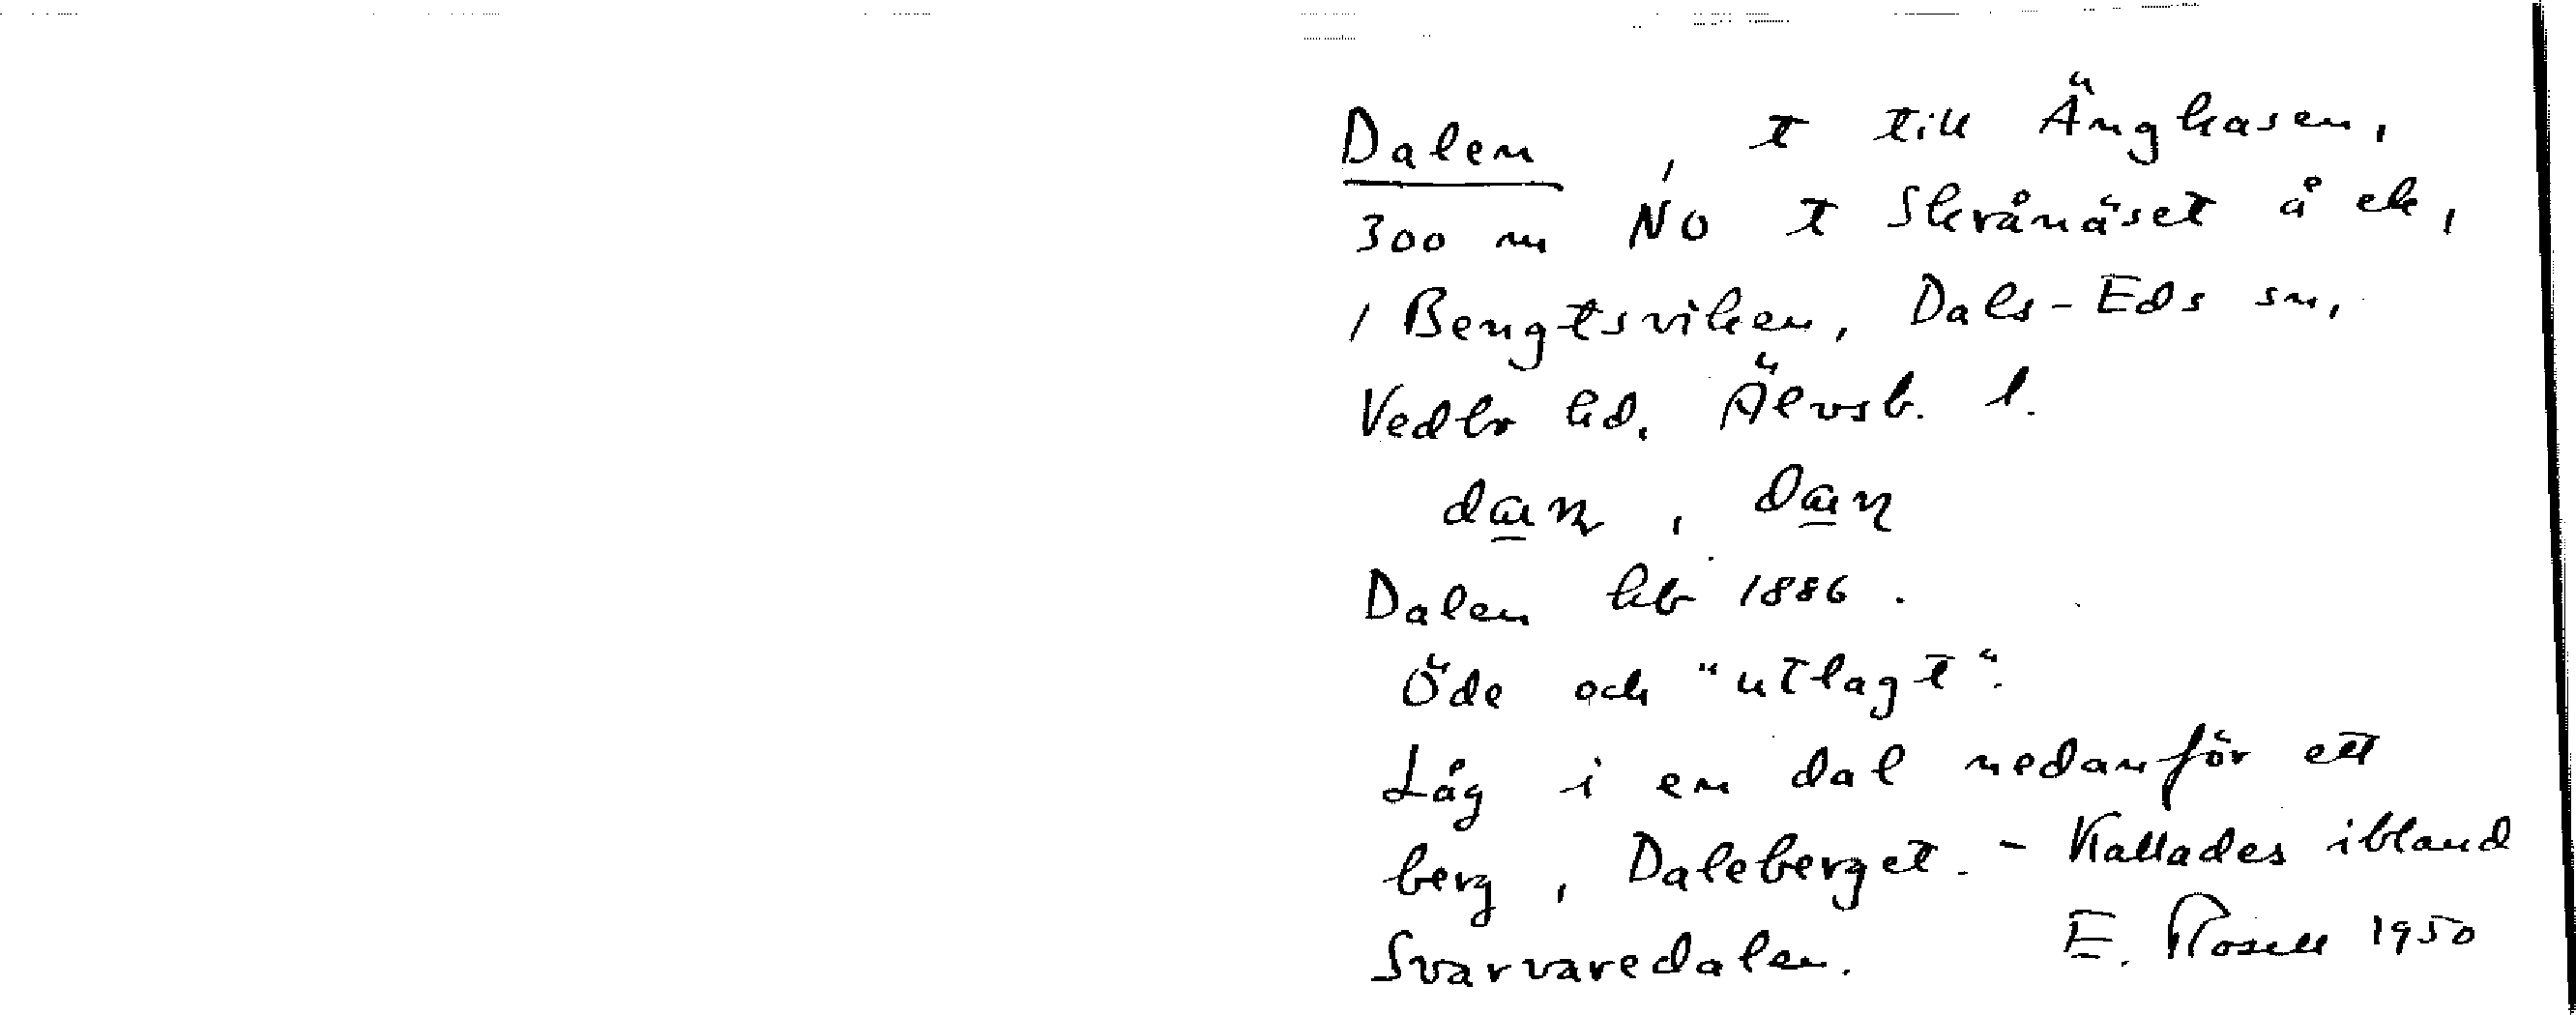 Dalen, t till Ängkasen,
300 m NO t Skrånäset å ek,
1 Bengtsviken, Dals-Eds sn,
Vedbr hd. Älvsb. l.
Dalen hb 1886.
Öde och "utlagt".
Låg i en dal nedanför ett
berg, Daleberget. - Kallades ibland
Svarvaredalen. E. Rosell 1950